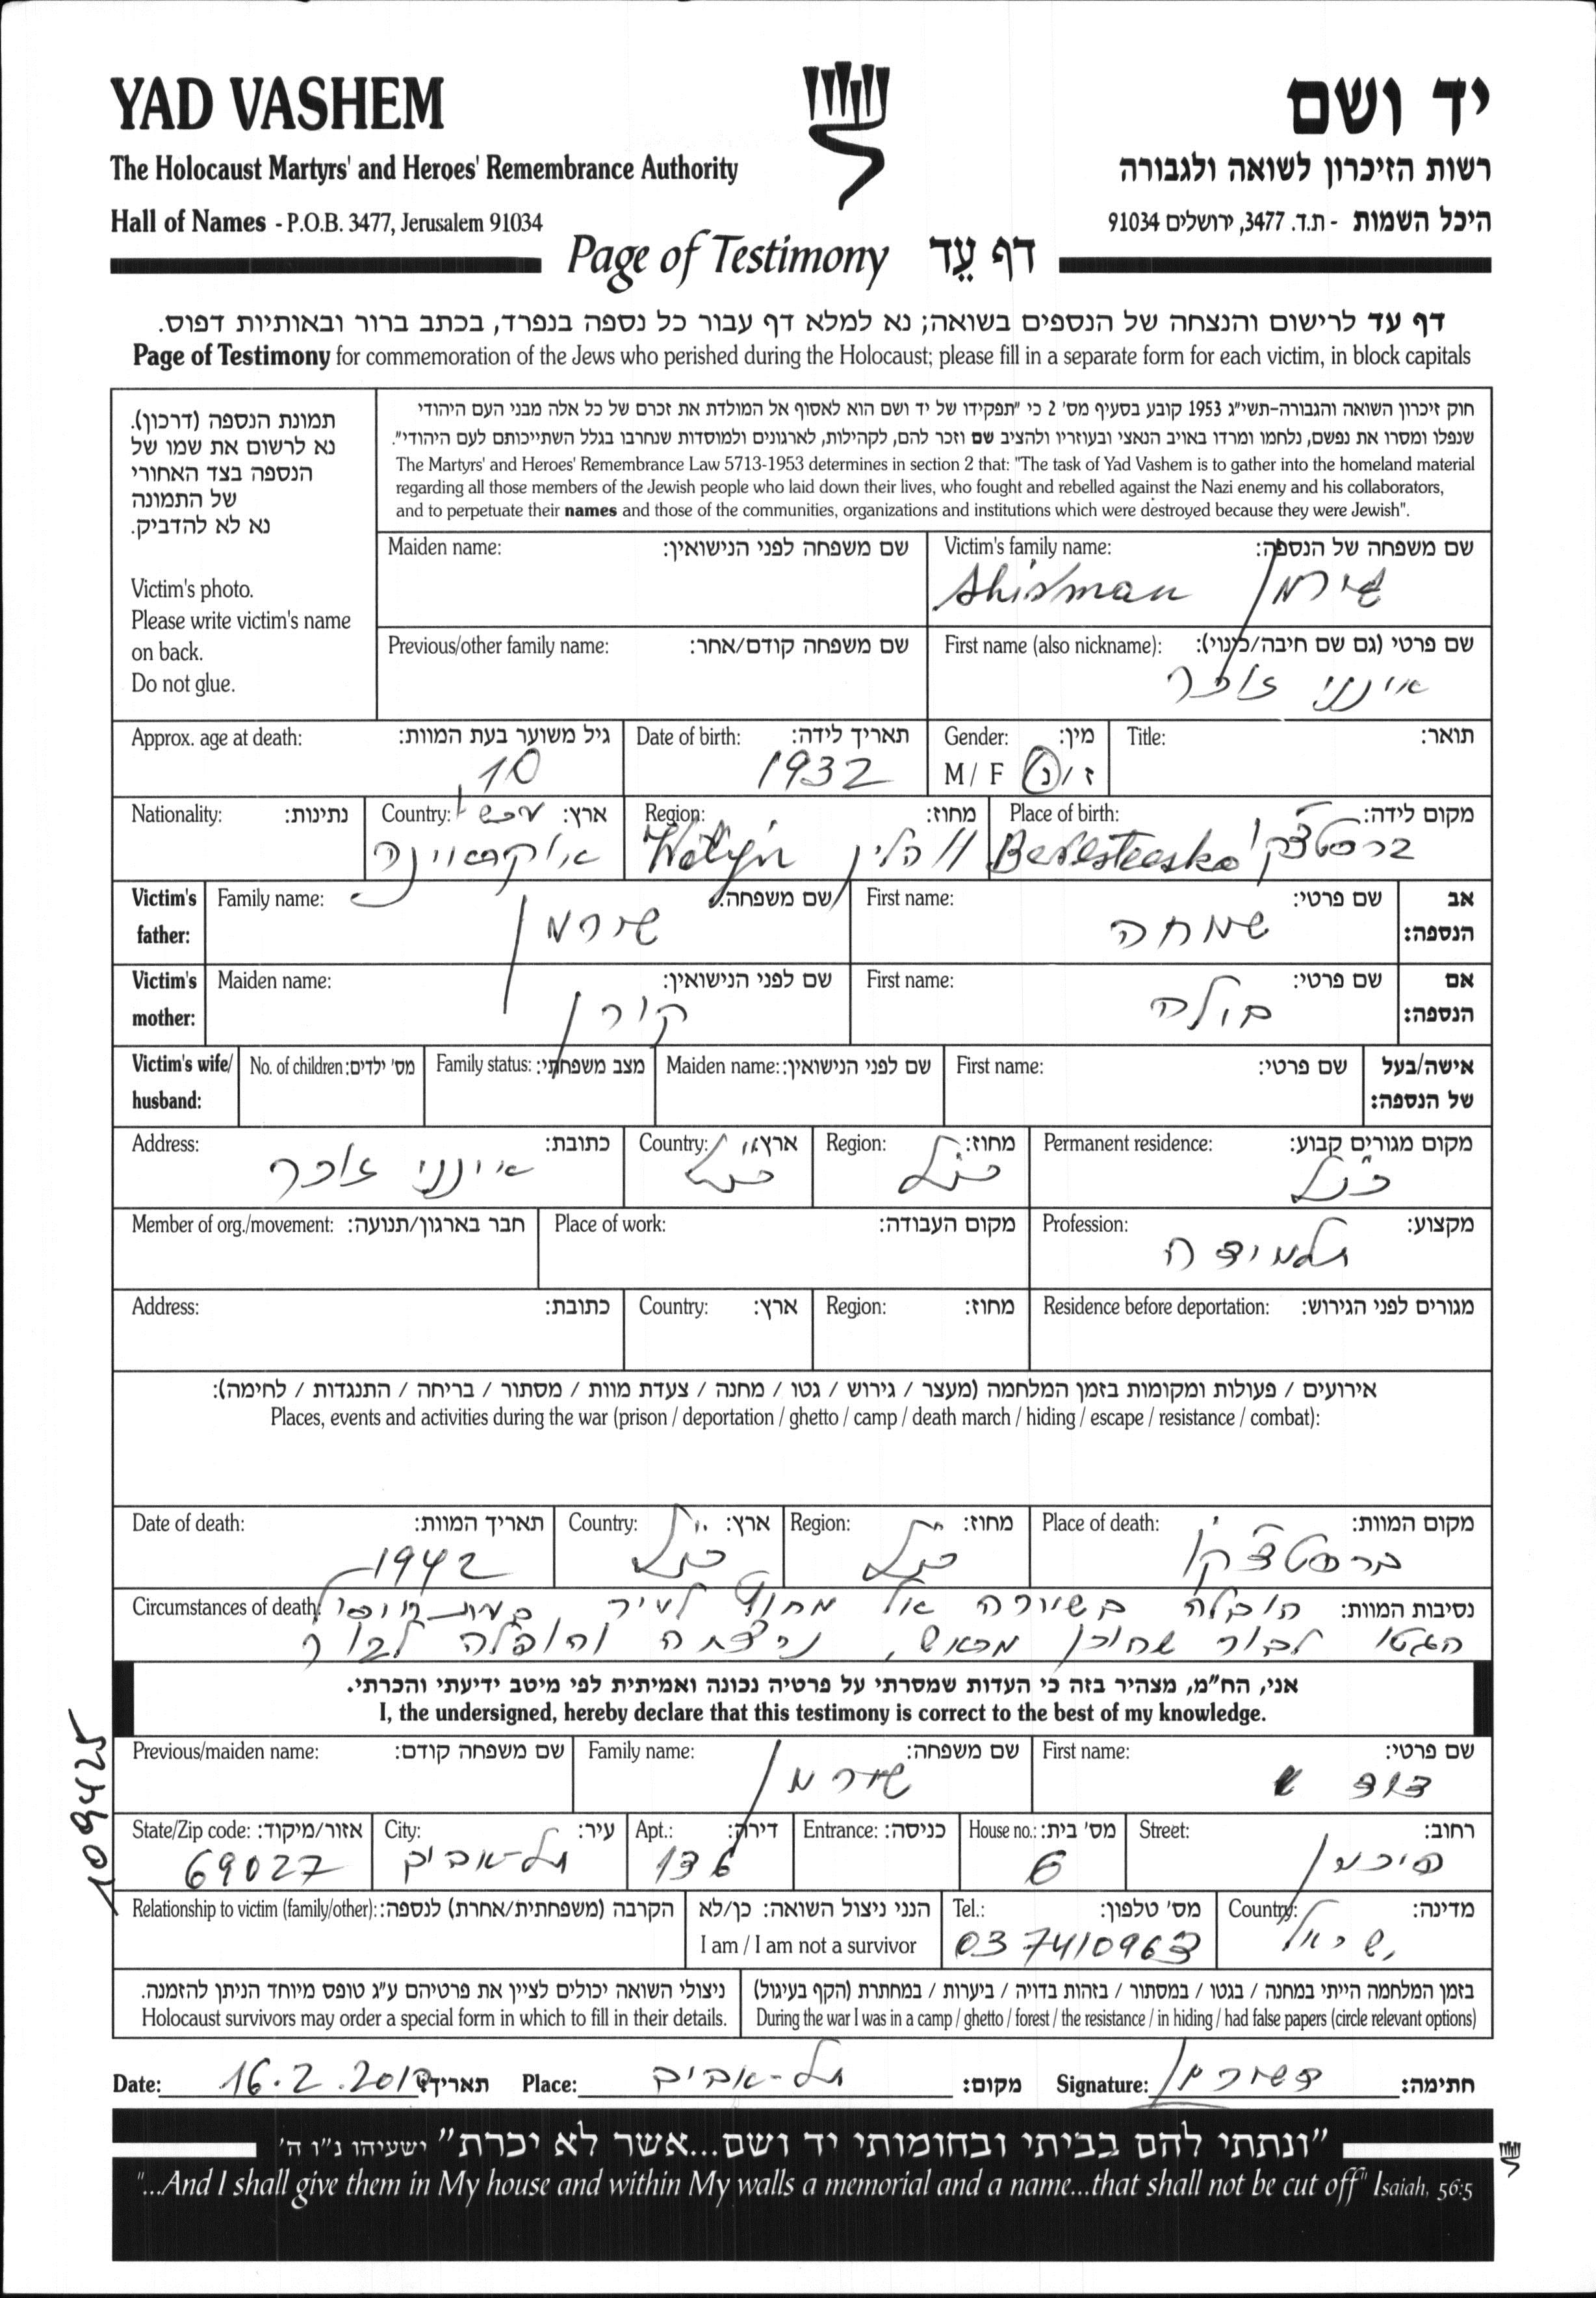 YAD VASHEM
יד ושם
The Holocaust Martyrs' and Heroes' Remembrance Authority
רשות הזיכרון לשואה ולגבורה
Hall of Names - P.O.B. 3477, Jerusalem 91034
היכל השמות - ת.ד. 3477, ירושלים 91034
Page of Testimony דף עֵד
דף עד לרישום והנצחה של הנספים בשואה; נא למלא דף עבור כל נספה בנפרד, בכתב ברור ובאותיות דפוס.
Page of Testimony for commemoration of the Jews who perished during the Holocaust; please fill in a separate form for each victim, in block capitals
תמונת הנספה (דרכון).
נא לרשום את שמו של
הנספה בצד האחורי
של התמונה
נא לא להדביק.
Victim's photo.
Please write victim's name
on back.
Do not glue.
חוק זיכרון השואה והגבורה-תשי"ג 1953 קובע בסעיף מס' 2 כי "תפקידו של יד ושם הוא לאסוף אל המולדת את זכרם של כל אלה מבני העם היהודי
שנפלו ומסרו את נפשם, נלחמו ומרדו באויב הנאצי ובעוזריו ולהציב שם וזכר להם, לקהילות, לארגונים ולמוסדות שנחרבו בגלל השתייכותם לעם היהודי".
The Martyrs' and Heroes' Remembrance Law 5713-1953 determines in section 2 that: "The task of Yad Vashem is to gather into the homeland material
regarding all those members of the Jewish people who laid down their lives, who fought and rebelled against the Nazi enemy and his collaborators,
and to perpetuate their names and those of the communities, organizations and institutions which were destroyed because they were Jewish".
Victim's family name: שם משפחה של הנספה:
שירמן
Maiden name: שם משפחה לפני הנישואין:
First name (also nickname): שם פרטי (גם שם חיבה/כינוי):
זלכה
Previous/other family name: שם משפחה קודם/אחר:
Title: תואר:
Gender: מין:
M / F ז / נ
Date of birth: תאריך לידה:
1932
Approx. age at death: גיל משוער בעת המוות:
10
Place of birth: מקום לידה:
ברסטצקו
Region: מחוז:
Wołyń ווהלין
Country: ארץ:
עכשיו
אוקראינה
Nationality: נתינות:
Victim's father: אב הנספה:
First name: שם פרטי:
שמחה
Family name: שם משפחה:
שירמן
Victim's mother: אם הנספה:
First name: שם פרטי:
Maiden name: שם לפני הנישואין:
קורן
Victim's wife/ husband: אישה/בעל של הנספה:
First name: שם פרטי:
Maiden name: שם לפני הנישואין:
Family status: מצב משפחתי:
No. of children: מס' ילדים:
Permanent residence: מקום מגורים קבוע:
כנ"ל
Region: מחוז:
כנ"ל
Country: ארץ:
כנ"ל
Address: כתובת:
Profession: מקצוע:
תלמידה
Place of work: מקום העבודה:
Member of org./movement: חבר בארגון/תנועה:
Residence before deportation: מגורים לפני הגירוש:
Region: מחוז:
Country: ארץ:
Address: כתובת:
אירועים / פעולות ומקומות בזמן המלחמה (מעצר / גירוש / גטו / מחנה / צעדת מוות / מסתור / בריחה / התנגדות / לחימה):
Places, events and activities during the war (prison / deportation / ghetto / camp / death march / hiding / escape / resistance / combat):
Place of death: מקום המוות:
ברסטצקו
Region: מחוז:
כנ"ל
Country: ארץ:
כנ"ל
Date of death: תאריך המוות:
1942
Circumstances of death: נסיבות המוות:
הובלה בשיירה אל מחוץ לעיר,
הגטו לבור שהוכן מראש, נרצחה והופלה לבור
אני, הח"מ, מצהיר בזה כי העדות שמסרתי על פרטיה נכונה ואמיתית לפי מיטב ידיעתי והכרתי.
I, the undersigned, hereby declare that this testimony is correct to the best of my knowledge.
109425
First name: שם פרטי:
דוד
Family name: שם משפחה:
שירמן
Previous/maiden name: שם משפחה קודם:
Street: רחוב:
House no.: מס' בית:
6
Entrance: כניסה:
Apt.: דירה:
136
City: עיר:
תל-אביב
State/Zip code: אזור/מיקוד:
69027
Country: מדינה:
ישראל
Tel.: מס' טלפון:
03 7410963
הנני ניצול השואה: כן/לא
I am / I am not a survivor
Relationship to victim (family/other): הקרבה (משפחתית/אחרת) לנספה:
בזמן המלחמה הייתי במחנה / בגטו / במסתור / בזהות בדויה / ביערות / במחתרת (הקף בעיגול)
During the war I was in a camp / ghetto / forest / the resistance / in hiding / had false papers (circle relevant options)
ניצולי השואה יכולים לציין את פרטיהם ע"ג טופס מיוחד הניתן להזמנה.
Holocaust survivors may order a special form in which to fill in their details.
Date: תאריך: Place: תל-אביב מקום: Signature: חתימה:
"ונתתי להם בביתי ובחומותי יד ושם...אשר לא יכרת" ישעיהו נ"ו ה'
"...And I shall give them in My house and within My walls a memorial and a name...that shall not be cut off" Isaiah, 56:5